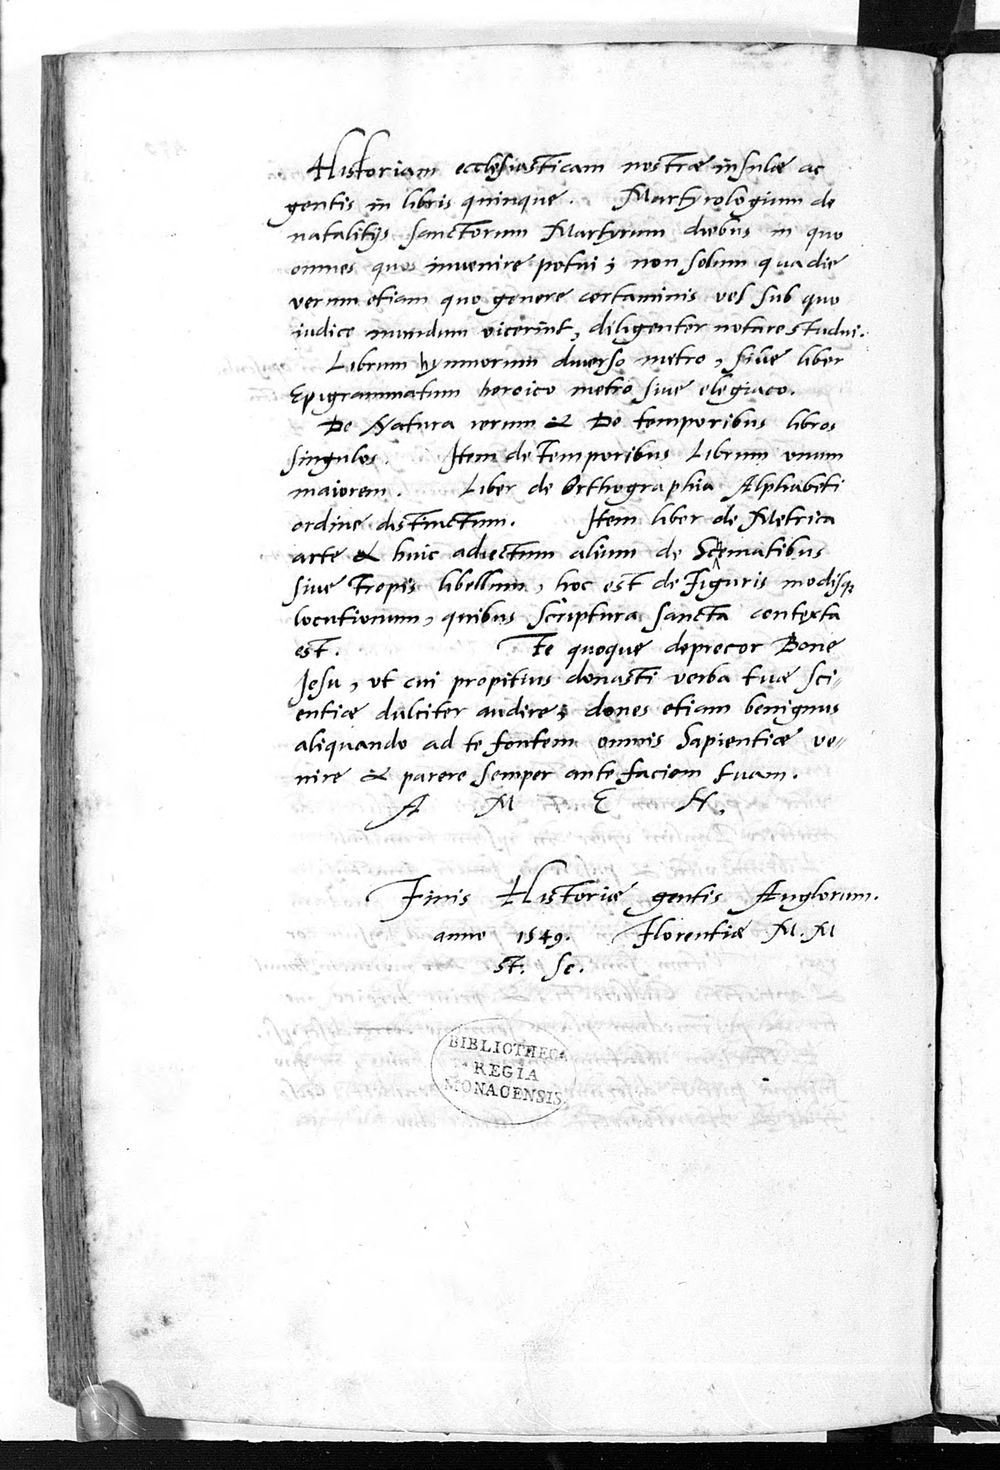 Historiam ecclesiasticam nostræ insulæ ac
gentis in libris quinque. Martyrologium de
natalitijs sanctorum Martyrum diebus in quo
omnes quos invenire potui; non solum qua die
verum etiam quo genere certaminis vel sub quo
iudice mundum vicerint, diligenter notare studui.
Librum hymnorum diverso metro, sive liber
Epigrammatum heroico metro sive elegiaco.
De Natura rerum & De temporibus libros
singulos. Item de Temporibus Librum unum
maiorem. Liber de Orthographia Alphabeti
ordine distinctum. Item liber de Metrica
arte & huic adiectum alium de Scematibus
sive Tropis libellum, hoc est de Figuris modisq
locutionum, quibus scriptura sancta contexta
est. Te quoque deprecor Bone
Jesu, ut cui propitius donasti verba tuæ sci-
entiæ dulciter audire; dones etiam benignus
aliquando ad te fontem omnis sapientiæ ve-
nire & parere semper ante faciem tuam.
A M E N.
Finis Historiæ gentis Anglorum.
anno 1549. Florentiæ M. M
st. Sc.
BIBLIOTHECA
REGIA
MONACENSIS.